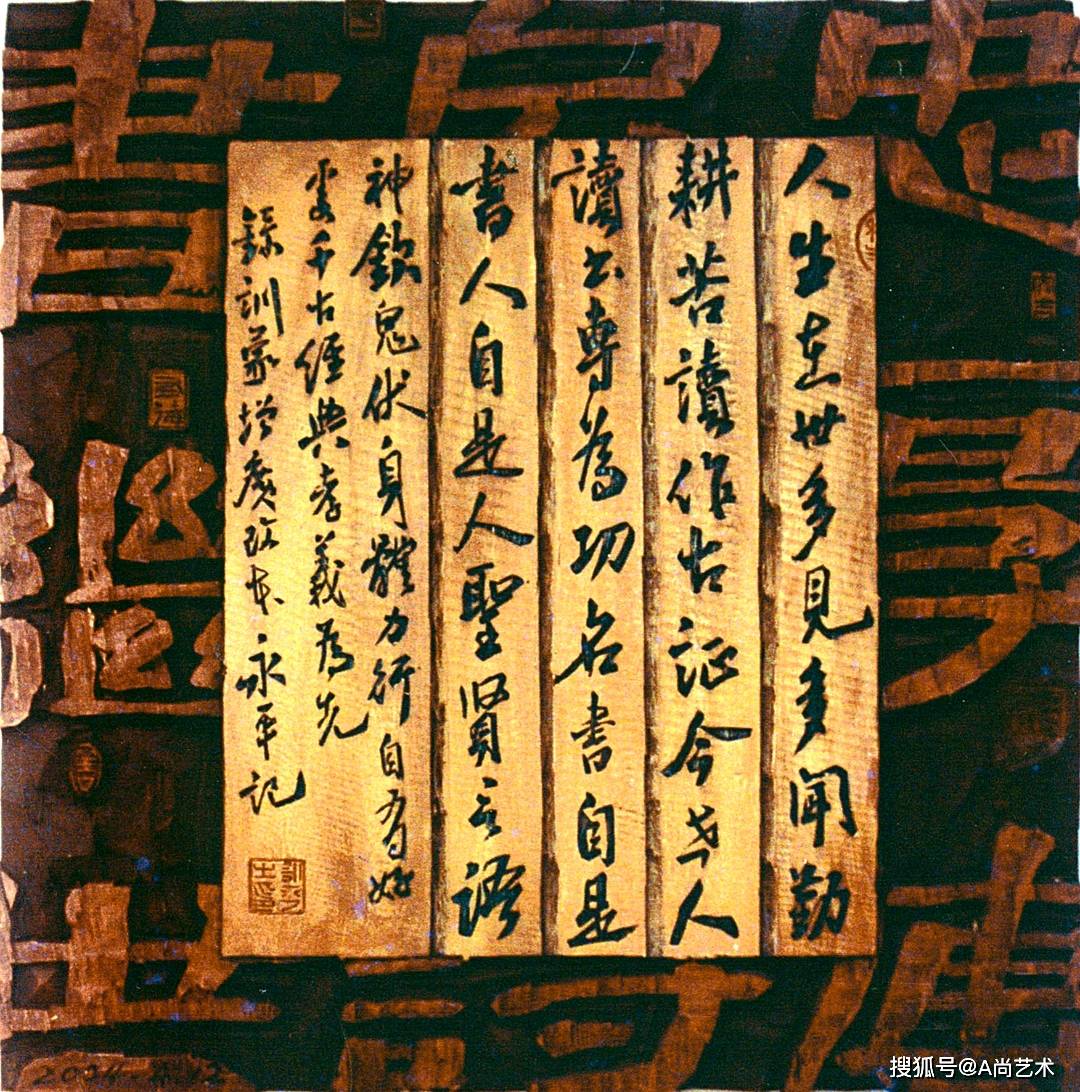 人生在世多見多聞勤
耕苦讀作古証今世人
讀书專為功名書自是
書人自是人聖賢言語
神欽鬼伏身體力行自有好
處千古經典孝義為先
錄訓蒙增廣改本永平記
搜狐号@A尚艺术